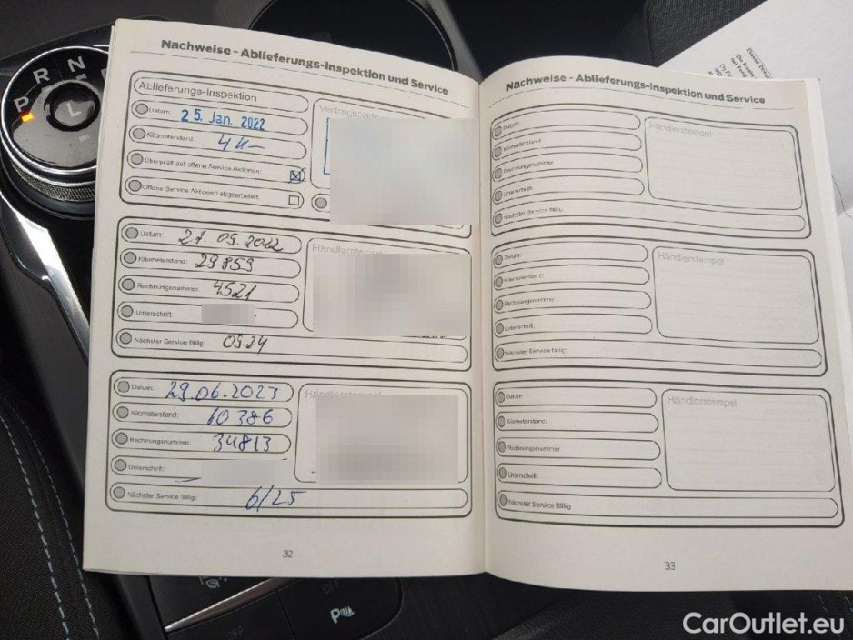 Nachweise - Ablieferungs-Inspektion und Service
Ablieferungs-Inspektion
Datum: 25. Jan. 2022
Kilometerstand:
Überprüft auf offene Service Aktionen:
Offene Service Aktionen abgearbeitet:
Datum: 27 05. 2022
Händlerstempel
Kilometerstand: 29859
Rechnungsnummer: 4521
Unterschrift:
Nächster Service fällig: 0524
Datum: 29.06.2023
Händlerstempel
Kilometerstand: 60386
Rechnungsnummer: 34813
Unterschrift:
Nächster Service fällig: 6/25
32
Nachweise - Ablieferungs-Inspektion und Service
Datum:
Händlerstempel
Kilometerstand:
Rechnungsnummer:
Unterschrift:
Nächster Service fällig:
Datum:
Händlerstempel
Kilometerstand:
Rechnungsnummer:
Unterschrift:
Nächster Service fällig:
Datum:
Händlerstempel
Kilometerstand:
Rechnungsnummer:
Unterschrift:
Nächster Service fällig:
33
P R N D
L
CarOutlet.eu